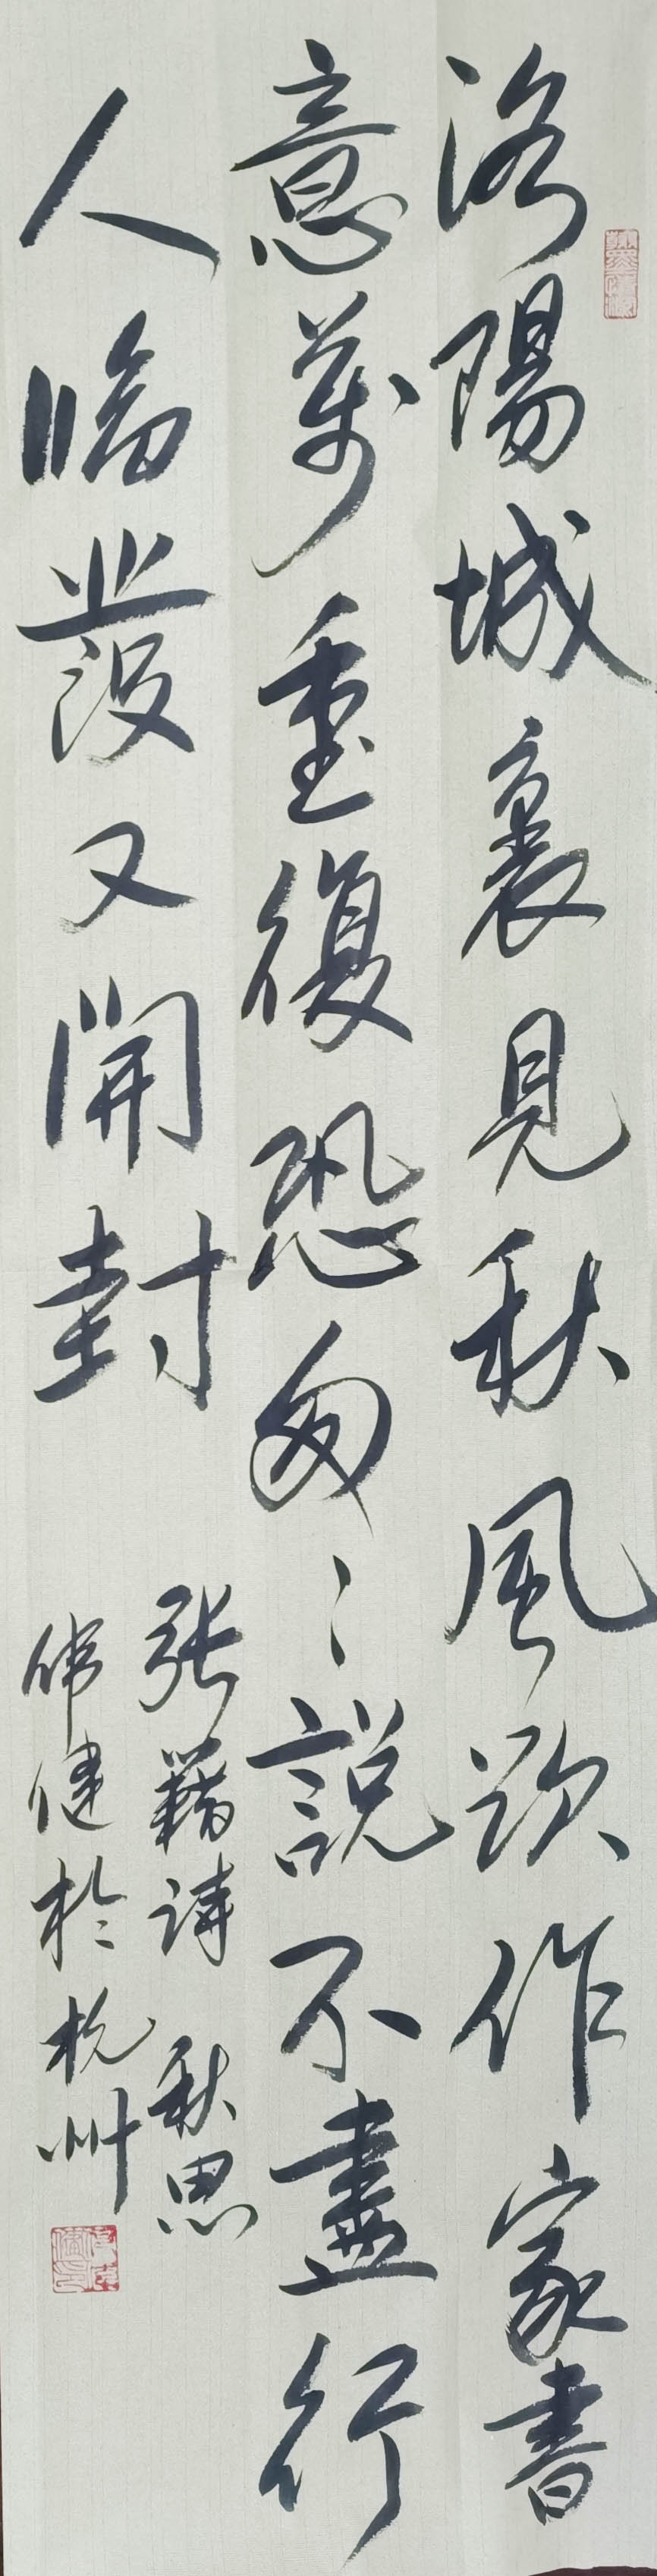 洛陽城裏見秋風欲作家書
意萬重復恐匆〻說不盡行
人臨發又開封
張籍詩 秋思
偉健於杭州